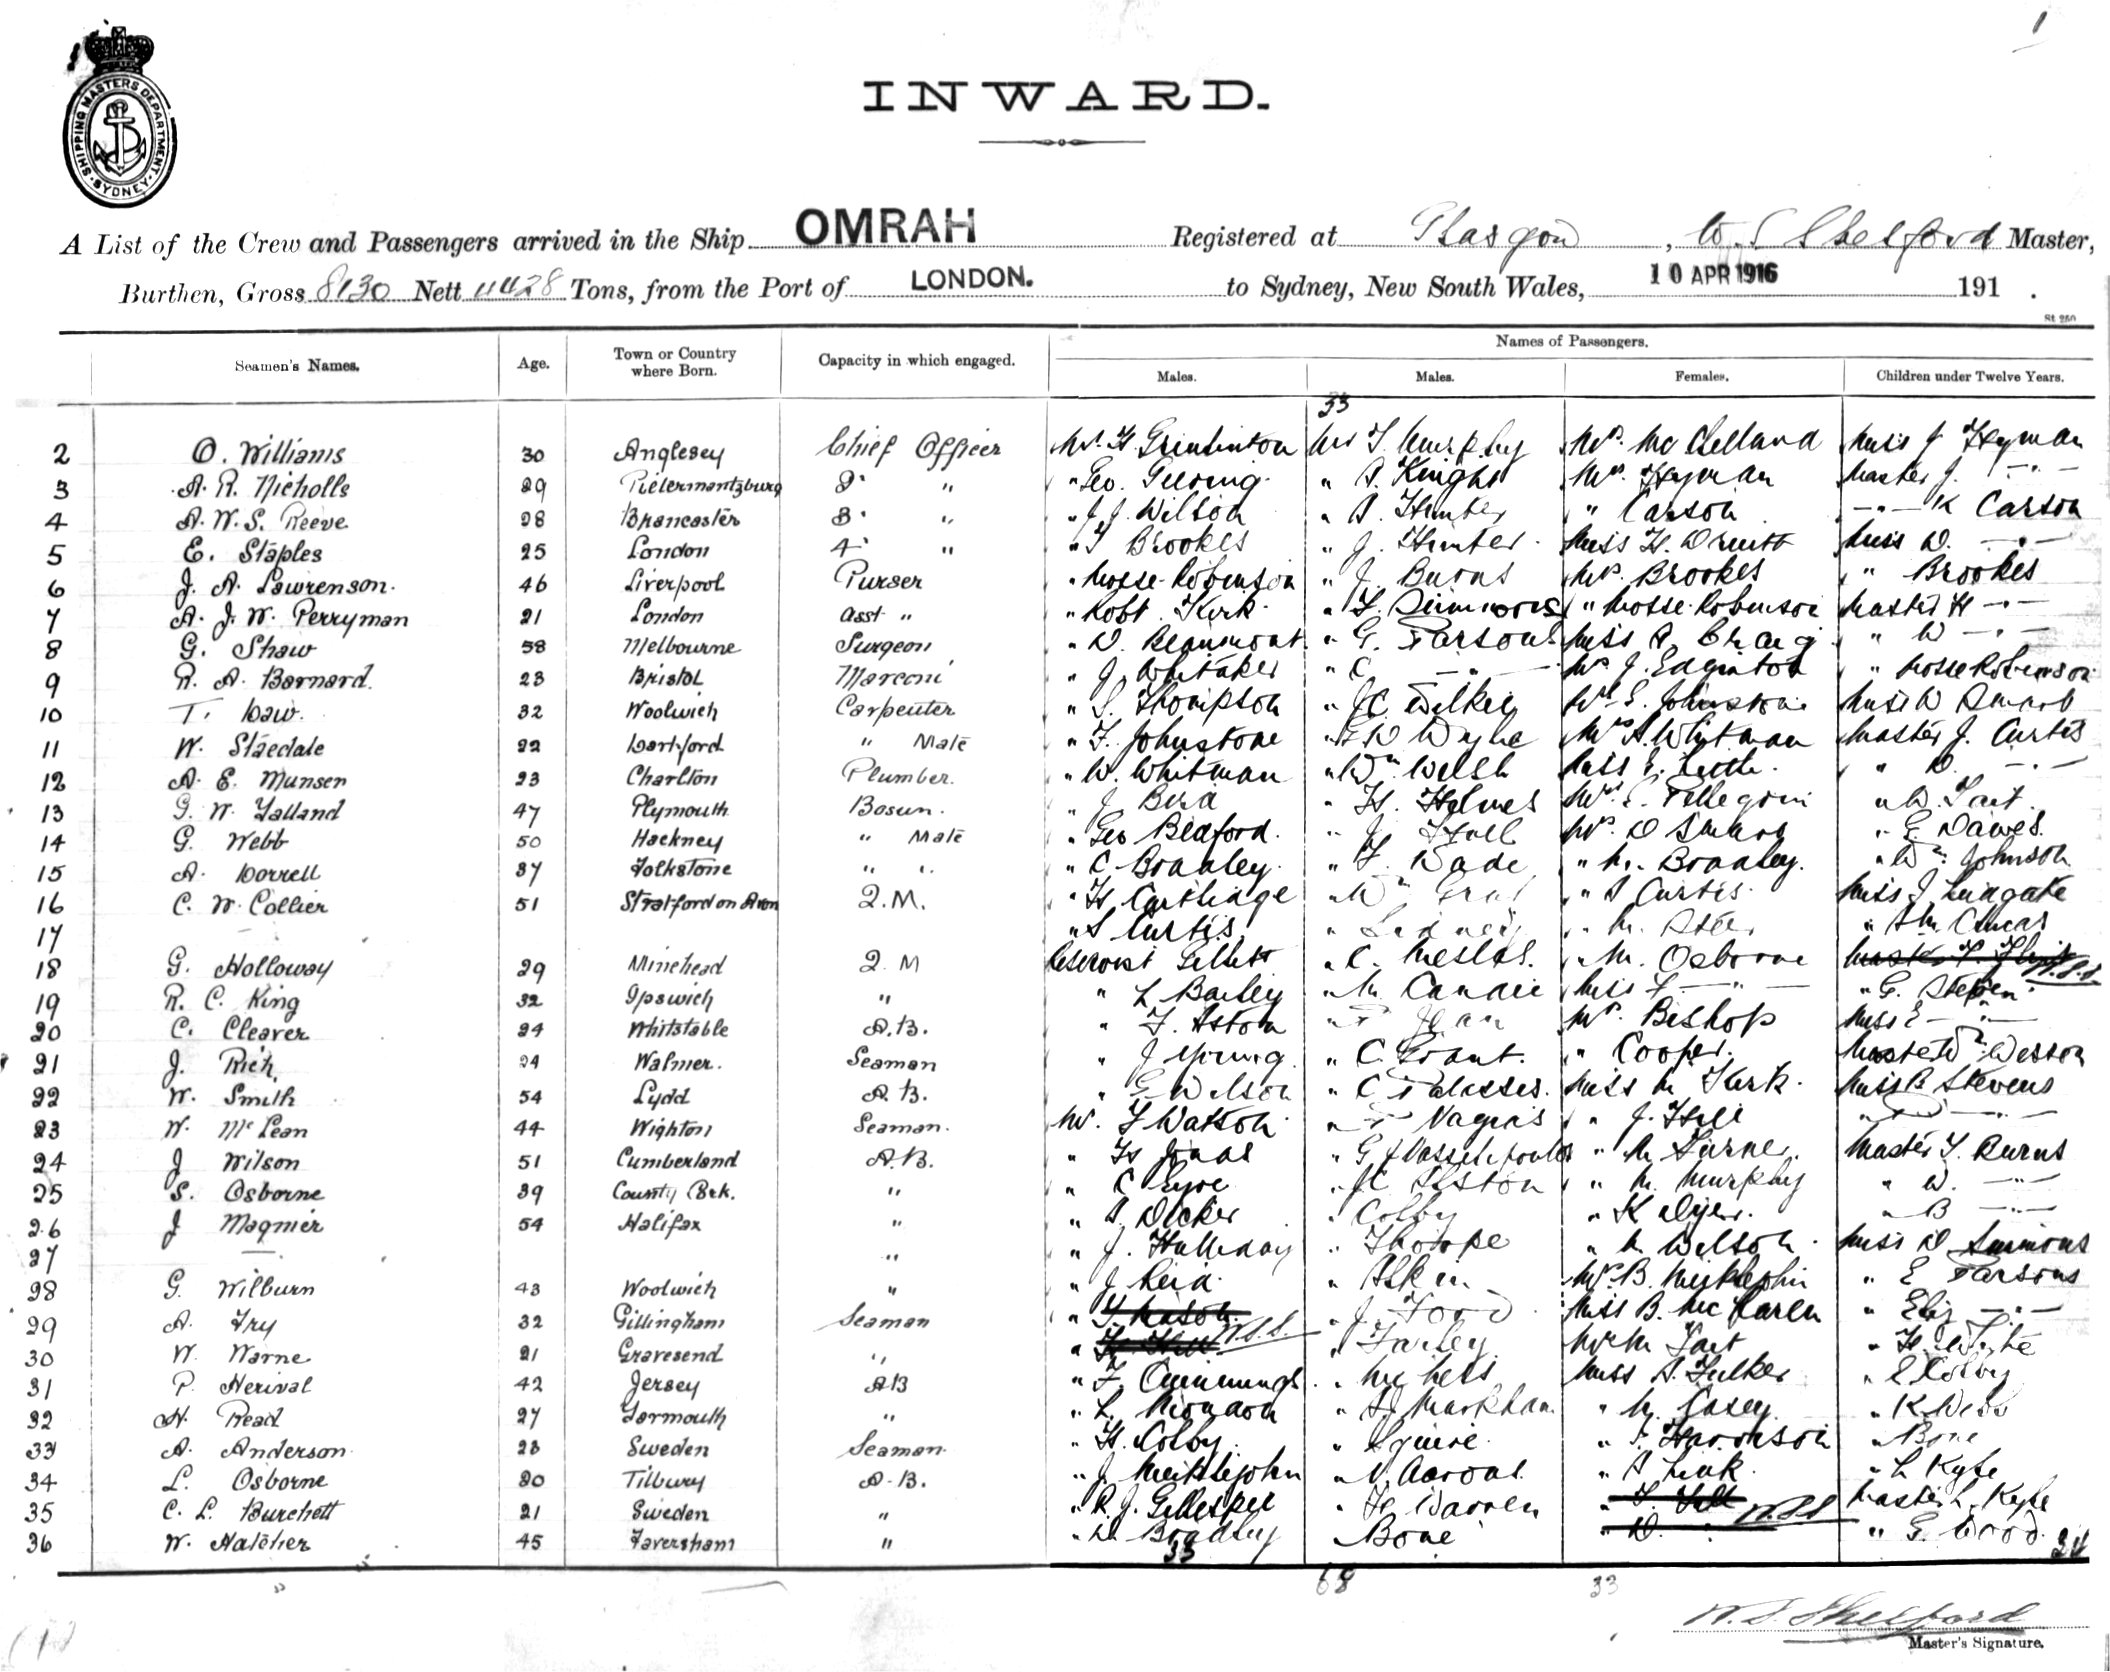 1
SHIPPING MASTERS DEPARTMENT
SYDNEY
INWARD.
A List of the Crew and Passengers arrived in the Ship OMRAH Registered at Glasgow, W. S. Shelford Master,
Burthen, Gross 8130 Nett 4428 Tons, from the Port of LONDON. to Sydney, New South Wales, 10 APR 1916 191 .
St 250
Seamen's Names. Age. Town or Country where Born. Capacity in which engaged. Names of Passengers.
Males. Males. Females. Children under Twelve Years.
33
2 O. Williams 30 Anglesey Chief Officer Mr. H. Mr T. Murphy Mrs. McClelland Miss J Hyman
3 A. R. Nicholls 29 Pietermantzburg 2 " " Geo. " A. Knight Mrs. Hyman Master J. — " —
4 A. W. S. Reeve 28 Brancaster 3 " " J. J. Wilson " A. Hunter " Carson — " — K Carson
5 E. Staples 25 London 4 " " T Brookes " J. Hunter Miss H. Miss D. — " —
6 J. A. Lawrenson. 46 Liverpool Purser " Mosse-Robinson " J. Burns Mrs. Brookes " Brookes
7 A. J. W. Perryman 21 London Asst " " Robt. Kirk " F. Simmons " Mosse-Robinson Master H — " —
8 G. Shaw 58 Melbourne Surgeon " D. Beaumont " G. Parsons Miss A. Craig " W — " —
9 R. A. Barnard. 23 Bristol Marconi " J. Whitaker " C — " — Mrs J. Edginton " Mosse Robinson
10 T. Law. 32 Woolwich Carpenter " S. Thompson " J C Wilkie Mrs E. Johnstone Miss W Smart
11 W. Staedale 22 Dartford " Mate " F. Johnstone " Wylie Mrs A. Whitman Master J. Curtis
12 A. E. Munsen 23 Charlton Plumber. " W. Whitman " Wm Welsh Miss E. " D. — " —
13 G. W. Yalland 47 Plymouth Bosun. " J. " H. Holmes Mrs E. Pellegrini " W. Tait.
14 G. Webb 50 Hackney " Mate " Geo Bedford. " J. Hall Mrs. D Smart " G. Dawes.
15 A. Dorrell 37 Folkstone " " " C Bradley. " F. Wade " M. Bradley. " Wm Johnson
16 C. W. Collier 51 Stratford on Avon Q.M. " H. Carthage " Wm " S Curtis. Miss J Ludgate
17 " S Curtis. " Sidney " M.
18 G. Holloway 29 Minehead Q.M Reservist Gillett " C. " M. Osborne W.S.S.
19 R. C. King 32 Ipswich " " L Bailey " M. Miss F — " — " G. Stephen
20 C. Cleaver 24 Whitstable A.B. " F. Aston " Jean Mrs. Bishop Miss E — " —
21 J. Rich. 24 Walmer. Seaman " J Young " C. Grant. " Cooper. Master Wm Wesson
22 W. Smith 54 Lydd A.B. " G Wilson " C Miss M Kirk. Miss B Stevens
23 W. McLean 44 Wighton Seaman. Mr. F Watson " " J. Hill
24 J Wilson 51 Cumberland A.B. " H Jonas " G " M Turner. Master T. Burns
25 S. Osborne 39 County Cork. " " C Eyre " J C " M. Murphy " W. — " —
26 J Magnier 54 Halifax " " A. Dicker " Colby " K Dyer. " B — " —
27 — " " J. Halliday " Thorpe " M Wilson. Miss D Simmons
28 G. Wilburn 43 Woolwich " " J. Reid Mrs. B. Micklejohn " E Parsons
29 A. Fry 32 Gillingham Seaman " T. Mason " J. Miss B. McLaren " Eliz — " —
30 W. Warne 21 Gravesend " " H. Hill W.S.S. " Farley Mrs M Tait " H. White
31 P. Herival 42 Jersey AB " F. Cummings Miss A. Fulker " E Colby
32 H. Read 27 Yarmouth " " L. " A. Markham " M. Casey " K Webb
33 A. Anderson 23 Sweden Seaman. " H. Colby " Squire " F. Harrison " Bone
34 L. Osborne 20 Tilbury A.B. " J. Meiklejohn " N. Aarons " A Link. " L Kyle
35 C. L. Burchett 21 Sweden " " R. J. Gillespie " H. Warren W.S.S. Master L. Kyle
36 W. Hatcher 45 Faversham " " H. Bradley " Bone " D. " G. Wood
33 24
68 33
W. S. Shelford
Master's Signature.